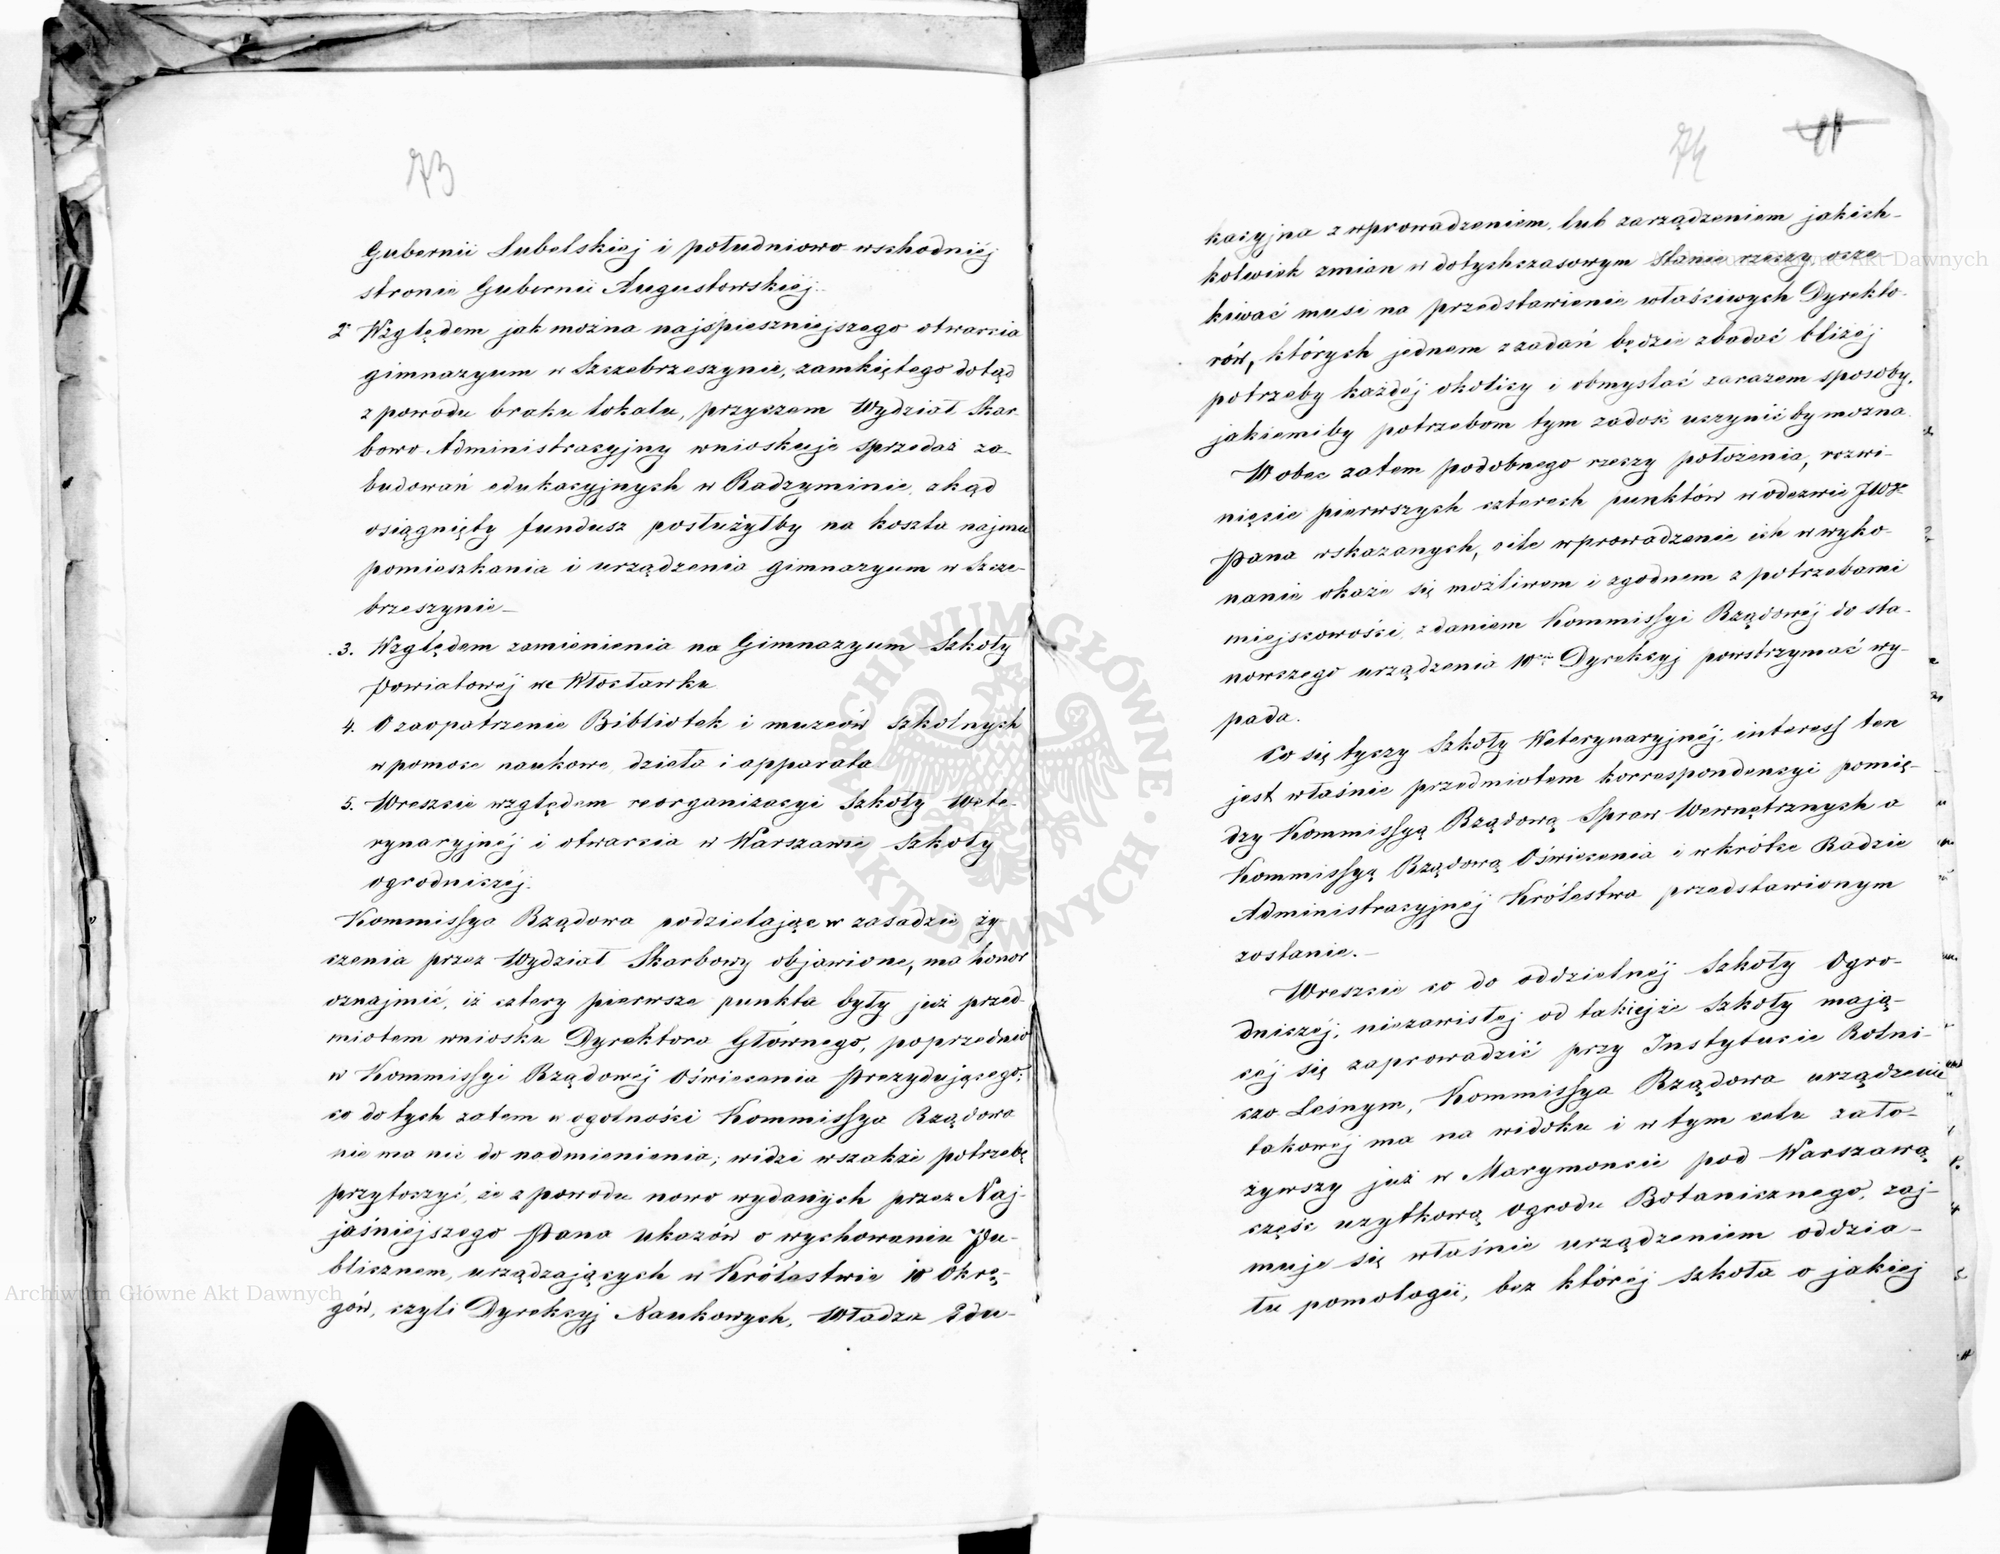 73
Gubernii Lubelskiej i południowo-wschodniéj
stronie Gubernii Augustowskiéj.
2. Względem jak można najspieszniejszego otwarcia
gimnazyum w Szczebrzeszynie, zamkiętego dotąd
z powodu braku lokalu, przyczem Wydział Skar-
bowo-Administracyjny wnioskuje sprzedaż za-
budowań edukacyjnych w Radzyminie, zkąd
osiągnięty fundusz posłużyłby na koszta najmu
pomieszkania i urządzenia gimnazyum w Szcze-
brzeszynie –
3. Względem zamienienia na Gimnazyum Szkoły
Powiatowéj we Włocławku
4. O zaopatrzenie Bibliotek i muzeów szkolnych
w pomoce naukowe, dzieła i apparata
5. Wreszcie względem reorganizacyi Szkoły Wete-
rynaryjnéj i otwarcia w Warszawie Szkoły
ogrodniczéj.
Kommissya Rządowa podzielając w zasadzie ży-
czenia przez Wydział Skarbowy objawione, ma honor
oznajmić, iż cztery pierwsze punkta były już przed-
miotem wniosku Dyrektora Głównego, poprzednio
w Kommissyi Rządowéj Oświecenia Prezydującego;
co do tych zatem w ogólności Kommissya Rządowa
nie ma nic do nadmienienia; widzi wszakże potrzebę
przytoczyć, że z powodu nowo wydanych przez Naj-
jaśniejszego Pana Ukazów o wychowaniu Pu-
blicznem, urządzających w Królestwie 10 Okrę-
gów, czyli Dyrekcyj Naukowych, Władza Edu-
74
kacyjna z wprowadzeniem, lub zarządzeniem jakich-
kolwiek zmian w dotychczasowym stanie rzeczy, ocze-
kiwać musi na przedstawienie właściwych Dyrekto-
rów, których jednem z zadań będzie zbadać bliżéj
potrzeby każdéj okolicy i obmyślać zarazem sposoby,
jakiemiby potrzebom tym zadość uczynić by można.
W obec zatem podobnego rzeczy położenia, rozwi-
nięcie pierwszych czterech punktów w odezwie JWgo
Pana wskazanych, o ile wprowadzenie ich w wyko-
nanie okaże się możliwem i zgodnem z potrzebami
miejscowości, zdaniem Kommissyi Rządowéj do sta-
nowczego urządzenia 10ciu Dyrekcyj powstrzymać wy-
pada.
Co się tyczy Szkoły Weterynaryjnéj, interess ten
jest właśnie przedmiotem korrespondencyi pomię-
dzy Kommissyą Rządową Spraw Wewnętrznych a
Kommissyą Rządową Oświecenia i wkrótce Radzie
Administracyjnéj Królestwa przedstawionym
zostanie. –
Wreszcie co do oddzielnéj Szkoły Ogro-
dniczéj, niezawisłej od takiejże Szkoły mają-
cej się zaprowadzić przy Instytucie Rolni-
czo Leśnym, Kommissya Rządowa urządzenie
takowej ma na widoku i w tym celu zało-
żywszy już w Marymoncie pod Warszawą
część użytkową ogrodu Botanicznego, zaj-
muje się właśnie urządzeniem oddzia-
łu pomologii, bez któréj szkoła o jakiej
ARCHIWUM GŁÓWNE AKT DAWNYCH
Archiwum Główne Akt Dawnych
Archiwum Główne Akt Dawnych